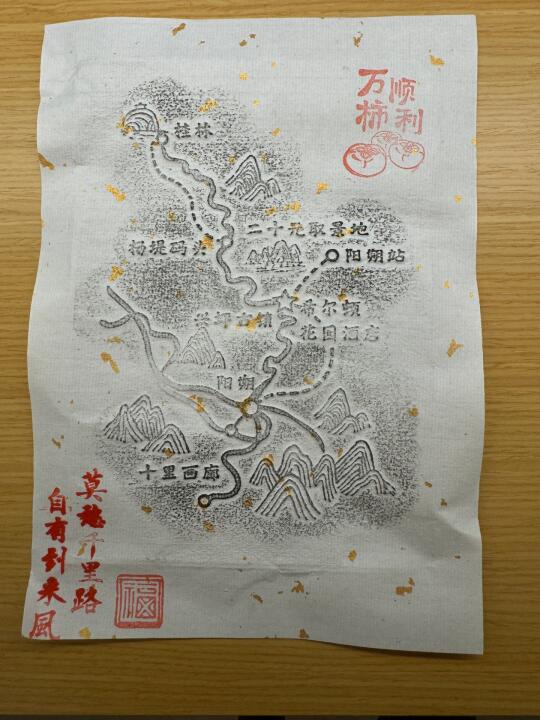 万柿
顺利
桂林
二十元取景地
杨堤码头
阳朔站
兴坪古镇
希尔顿
花园酒店
阳朔
十里画廊
莫愁千里路
自有到来風
福